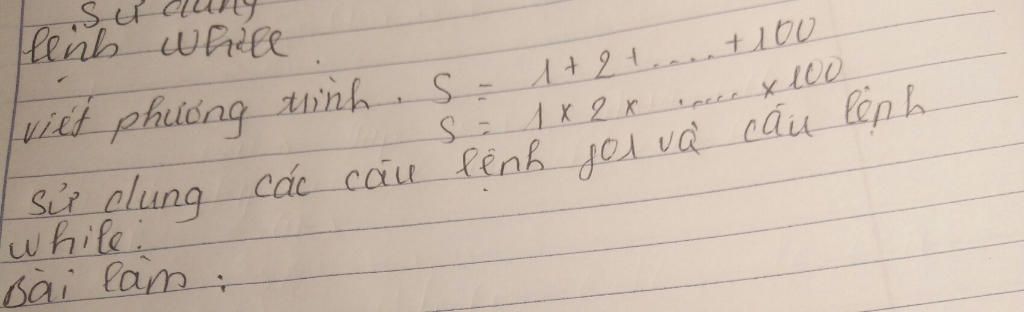 sử dụng
lệnh while.
viết phương trình. S = 1+2+.....+100
S = 1x2x.....x100
sử dụng các câu lệnh for và câu lệnh
while.
Bài làm :